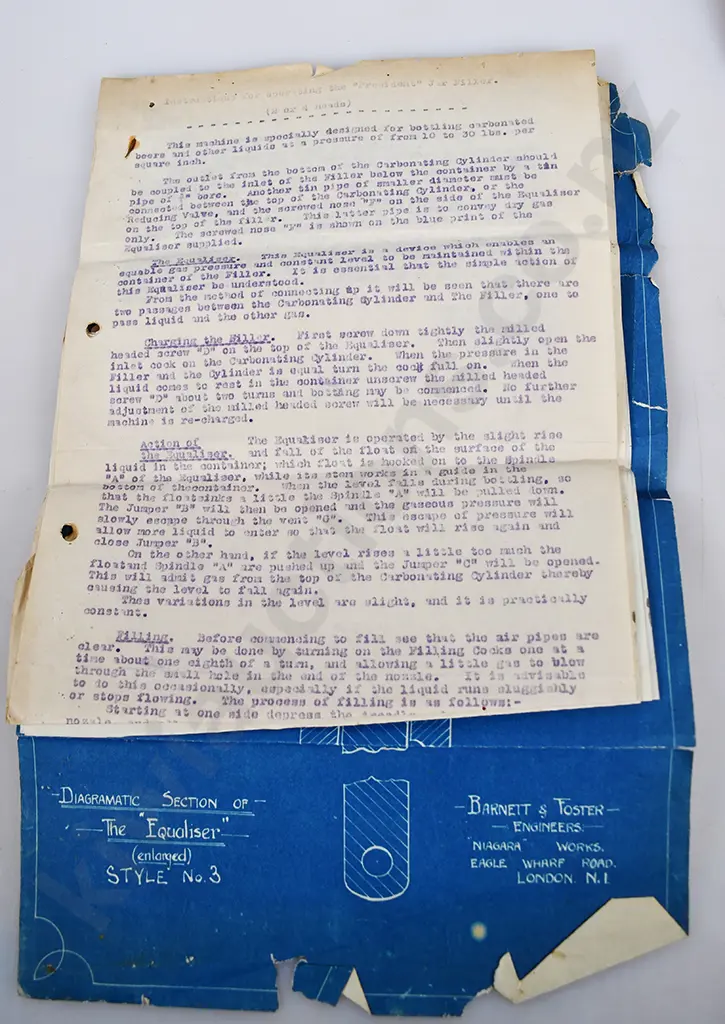 Instructions for operating the "President" Jar Filler.
(2 or 4 Heads)
This machine is specially designed for bottling carbonated
beers and other liquids at a pressure of from 10 to 30 lbs. per
square inch.
The outlet from the bottom of the Carbonating Cylinder should
be coupled to the inlet of the Filler below the container by a tin
pipe of bore. Another tin pipe of smaller diameter must be
connected between the top of the Carbonating Cylinder, or the
Reducing Valve, and the screwed nose on the side of the Equaliser
on the top of the filler. This latter pipe is to convey dry gas
only. The screwed nose is shown on the blue print of the
Equaliser supplied.
The Equaliser. This Equaliser is a device which enables an
equable gas pressure and constant level to be maintained within the
container of the Filler. It is essential that the simple action of
this Equaliser be understood.
From the method of connecting up it will be seen that there are
two passages between the Carbonating Cylinder and The Filler, one to
pass liquid and the other gas.
Charging the Filler. First screw down tightly the milled
headed screw "D" on the top of the Equaliser. Then slightly open the
inlet cock on the Carbonating Cylinder. When the pressure in the
Filler and the Cylinder is equal turn the cock full on. When the
liquid comes to rest in the container unscrew the milled headed
screw "D" about two turns and bottling may be commenced. No further
adjustment of the milled headed screw will be necessary until the
machine is re-charged.
Action of The Equaliser is operated by the slight rise
the Equaliser. and fall of the float on the surface of the
liquid in the container; which float is hooked on to the Spindle
"A" of the Equaliser, while its stem works in a guide in the
bottom of thecontainer. When the level falls during bottling, so
that the floatsinks a little the Spindle "A" will be pulled down.
The Jumper "B" will then be opened and the gaseous pressure will
slowly escape through the vent "G". This escape of pressure will
allow more liquid to enter so that the float will rise again and
close Jumper "B".
On the other hand, if the level rises a little too much the
floatand Spindle "A" are pushed up and the Jumper "C" will be opened.
This will admit gas from the top of the Carbonating Cylinder thereby
causing the level to fall again.
Thes variations in the level are slight, and it is practically
constant.
Filling. Before commencing to fill see that the air pipes are
clear. This may be done by turning on the Filling Cocks one at a
time about one eighth of a turn, and allowing a little gas to blow
through the small hole in the end of the nozzle. It is advisable
to do this occasionally, especially if the liquid runs sluggishly
or stops flowing. The process of filling is as follows:-
Starting at one side depress the
DIAGRAMATIC SECTION OF
The "Equaliser"
(enlarged)
STYLE No. 3
BARNETT & FOSTER
ENGINEERS.
"NIAGARA" WORKS.
EAGLE WHARF ROAD.
LONDON. N.1.